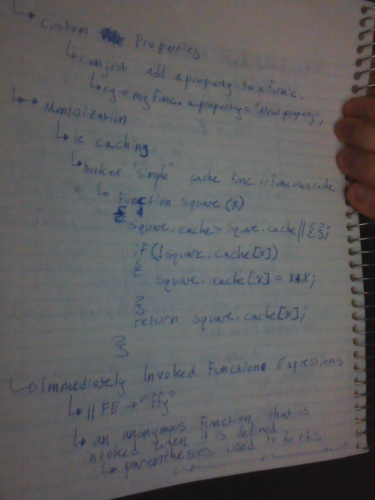 Custom Properties
can just add a property to a func.
eg myFunc.aproperty = "New property";
Memoization
ie caching
"simple" cache func
function square (x)
{
square.cache = square.cache || {};
if (!square.cache[x])
{
square.cache[x] = x*x;
}
return square.cache[x];
}
Immediately Invoked Function Expressions
IIFE → "iffy"
an anonymous function that is
invoked when it is defined
parentheses used to do this